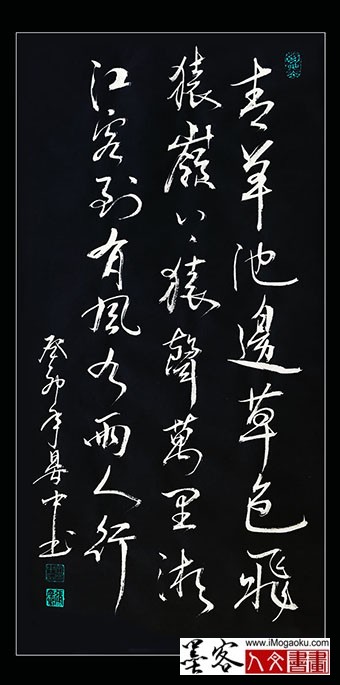 青羊池邊草色飛
猿嶺上猿聲萬里湘
江客到有風有雨人行
癸卯年暑中书
www.iMogaoku.com
墨客
人文書畫